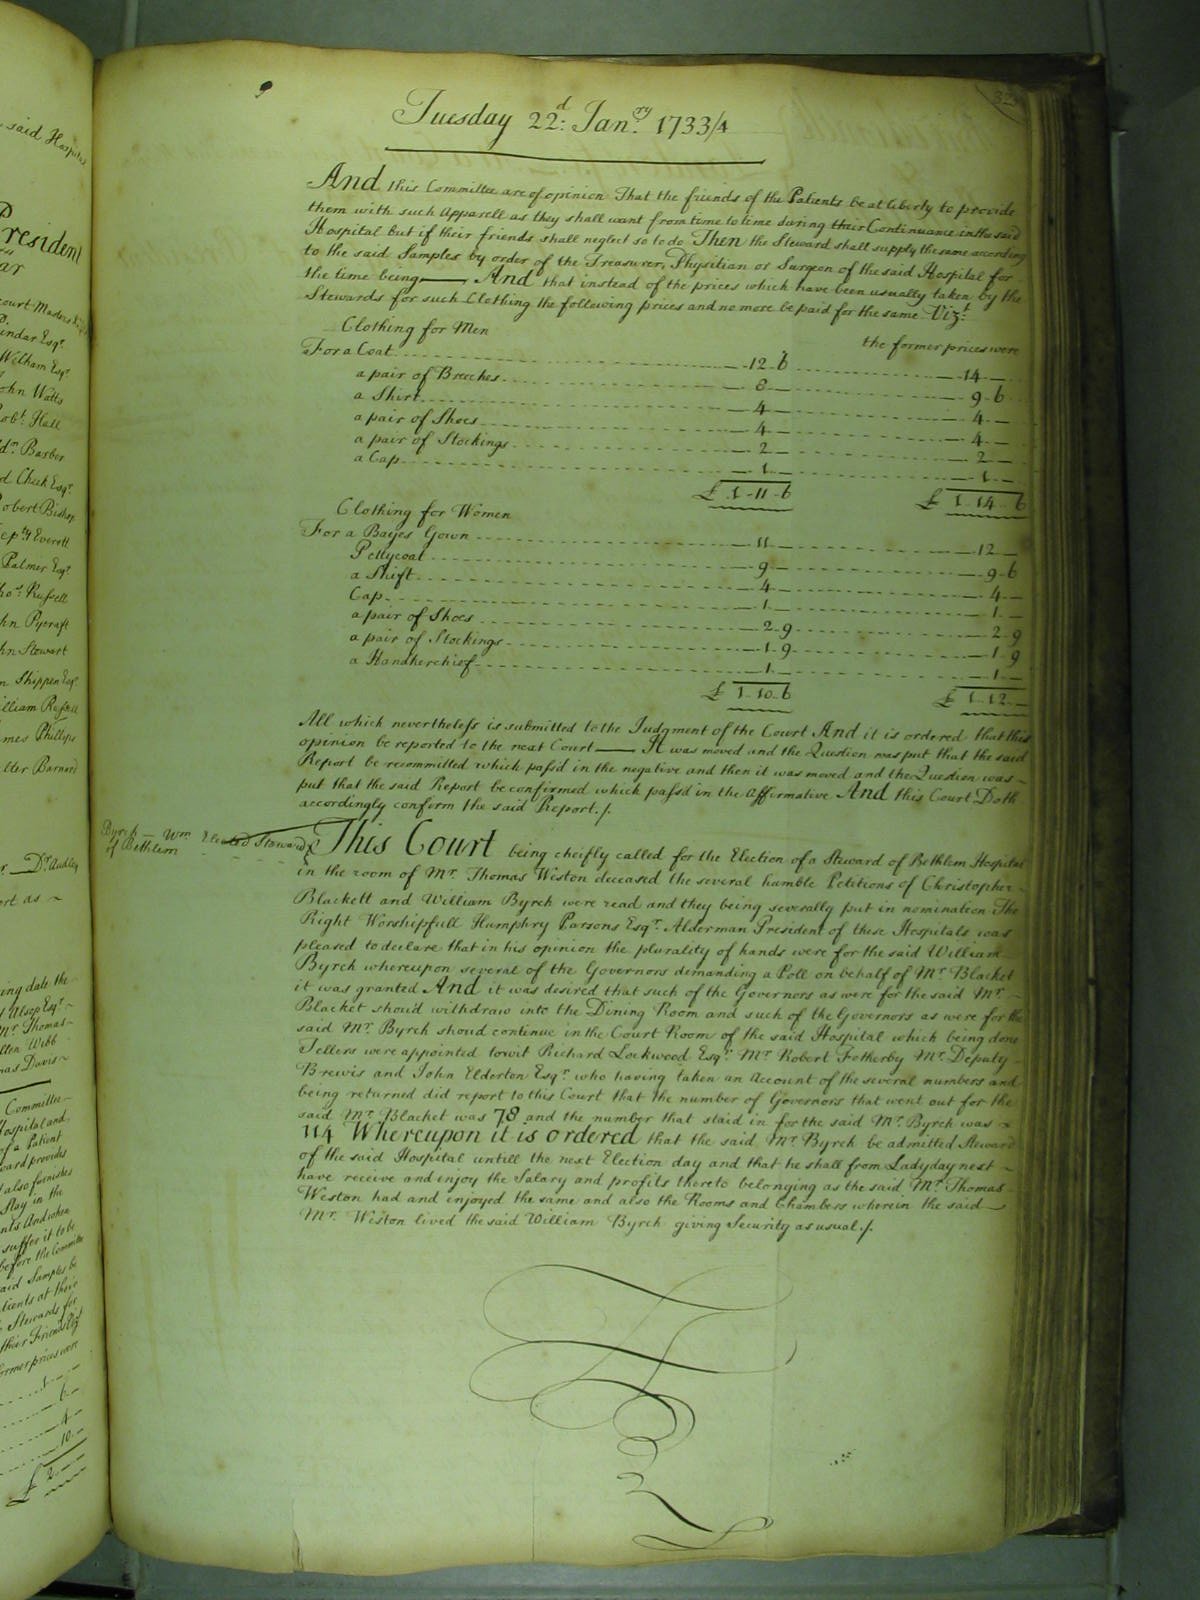 said Hospital
President
court Masters
Pindar Esqr.
Welham Esqr.
John Watts
Robt. Hall
Barber
Cheek Esqr.
Robert Bishop
Everett
Palmer Esqr.
Thos. Russell
John Pycraft
John Stewart
Shippen Esqr.
William Russell
James Phillips
Barnard
Dr. Audley
ort as
ing date the
Alsop Esqr.
Mr. Thomas
Allen Webb
mas Davis
Committee
Hospital and
of a Patient
ward provides
also furnishes
Stay in the
And when
suffer it to be
before the Committee
said Samples be
tients at their
Stewards for
their Friends Vizt.
former prices were
1
6
4
10
£ 2
Tuesday 22d: Janry. 1733/4
And this Committee are of opinion That the friends of the Patients be at liberty to provide
them with such Apparell as they shall want from time to time during their Continuance in the said
Hospital but if their friends shall neglect so to do Then the Steward shall supply the same according
to the said Samples by order of the Treasurer, Physitian or Surgeon of the said Hospital for
the time being — And that instead of the prices which have been usually taken by the
Stewards for such Clothing the following prices and no more be paid for the same Vizt.
Clothing for Men the former prices were
For a Coat 12 6 14 —
a pair of Breeches 8 — 9 6
a Shirt 4 — 4 —
a pair of Shoes 4 — 4 —
a pair of Stockings 2 — 2 —
a Cap 1 — 1 —
£ 1 - 11 - 6 £ 1 14 6
Clothing for Women
For a Bayes Gown 11 — 12 —
Pettycoat 9 — 9 6
a Shift 4 — 4 —
Cap 1 — 1 —
a pair of Shoes 2 9 2 9
a pair of Stockings 1 9 1 9
a Handkerchief 1 — 1 —
£ 1 10 6 £ 1 12 —
All which nevertheless is submitted to the Judgment of the Court And it is ordered that this
opinion be reported to the next Court — It was moved and the Question was put that the said
Report be recommitted which pass'd in the negative and then it was moved and the Question was
put that the said Report be confirmed which pass'd in the Affirmative And this Court Doth
accordingly confirm the said Report./.
Byrch — Wm Elected Steward
of Bethlem
This Court being cheifly called for the Election of a Steward of Bethlem Hospital
in the room of Mr. Thomas Weston deceased the several humble Petitions of Christopher
Blackett and William Byrch were read and they being severally put in nomination The
Right Worshipfull Humphry Parsons Esqr. Alderman President of these Hospitals was
pleased to declare that in his opinion the plurality of hands were for the said William
Byrch whereupon several of the Governors demanding a Poll on behalf of Mr. Blacket
it was granted And it was desired that such of the Governors as were for the said Mr.
Blacket should withdraw into the Dining Room and such of the Governors as were for the
said Mr. Byrch shoud continue in the Court Room of the said Hospital which being done
Tellers were appointed towit Richard Lockwood Esqr. Mr. Robert Fotherby Mr. Deputy
Brewis and John Elderton Esqr. who having taken an Account of the several numbers and
being returned did report to this Court that the number of Governors that went out for the
said Mr. Blacket was 78 and the number that staid in for the said Mr. Byrch was
114 Whereupon it is ordered that the said Mr. Byrch be admitted Steward
of the said Hospital untill the next Election day and that he shall from Ladyday next
have receive and injoy the Salary and profits thereto belonging as the said Mr. Thomas
Weston had and enjoyed the same and also the Rooms and Chambers wherein the said
Mr. Weston lived the said William Byrch giving Security as usual./.